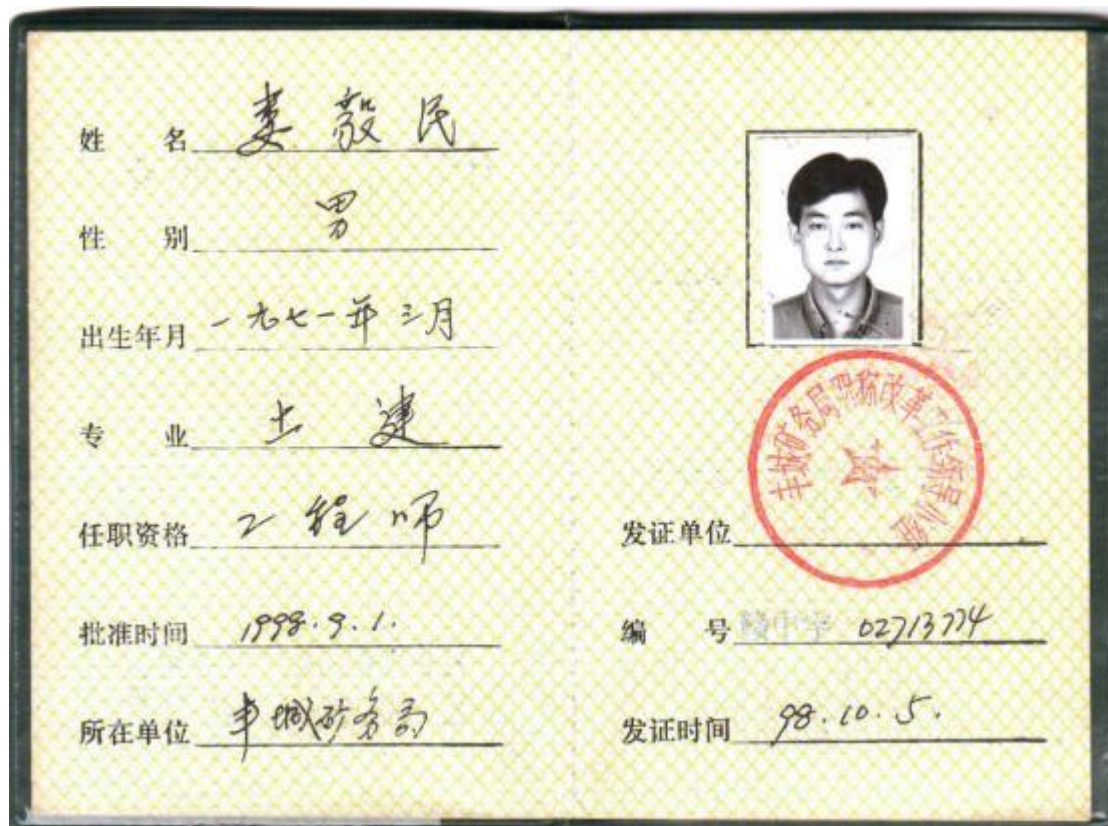 姓 名 娄毅民
性 别 男
出生年月 一九七一年三月
专 业 土建
任职资格 工程师
批准时间 1998.9.1.
所在单位 丰城矿务局
丰城矿务局职称改革工作领导小组
发证单位
编 号 赣中字 02713774
发证时间 98.10.5.